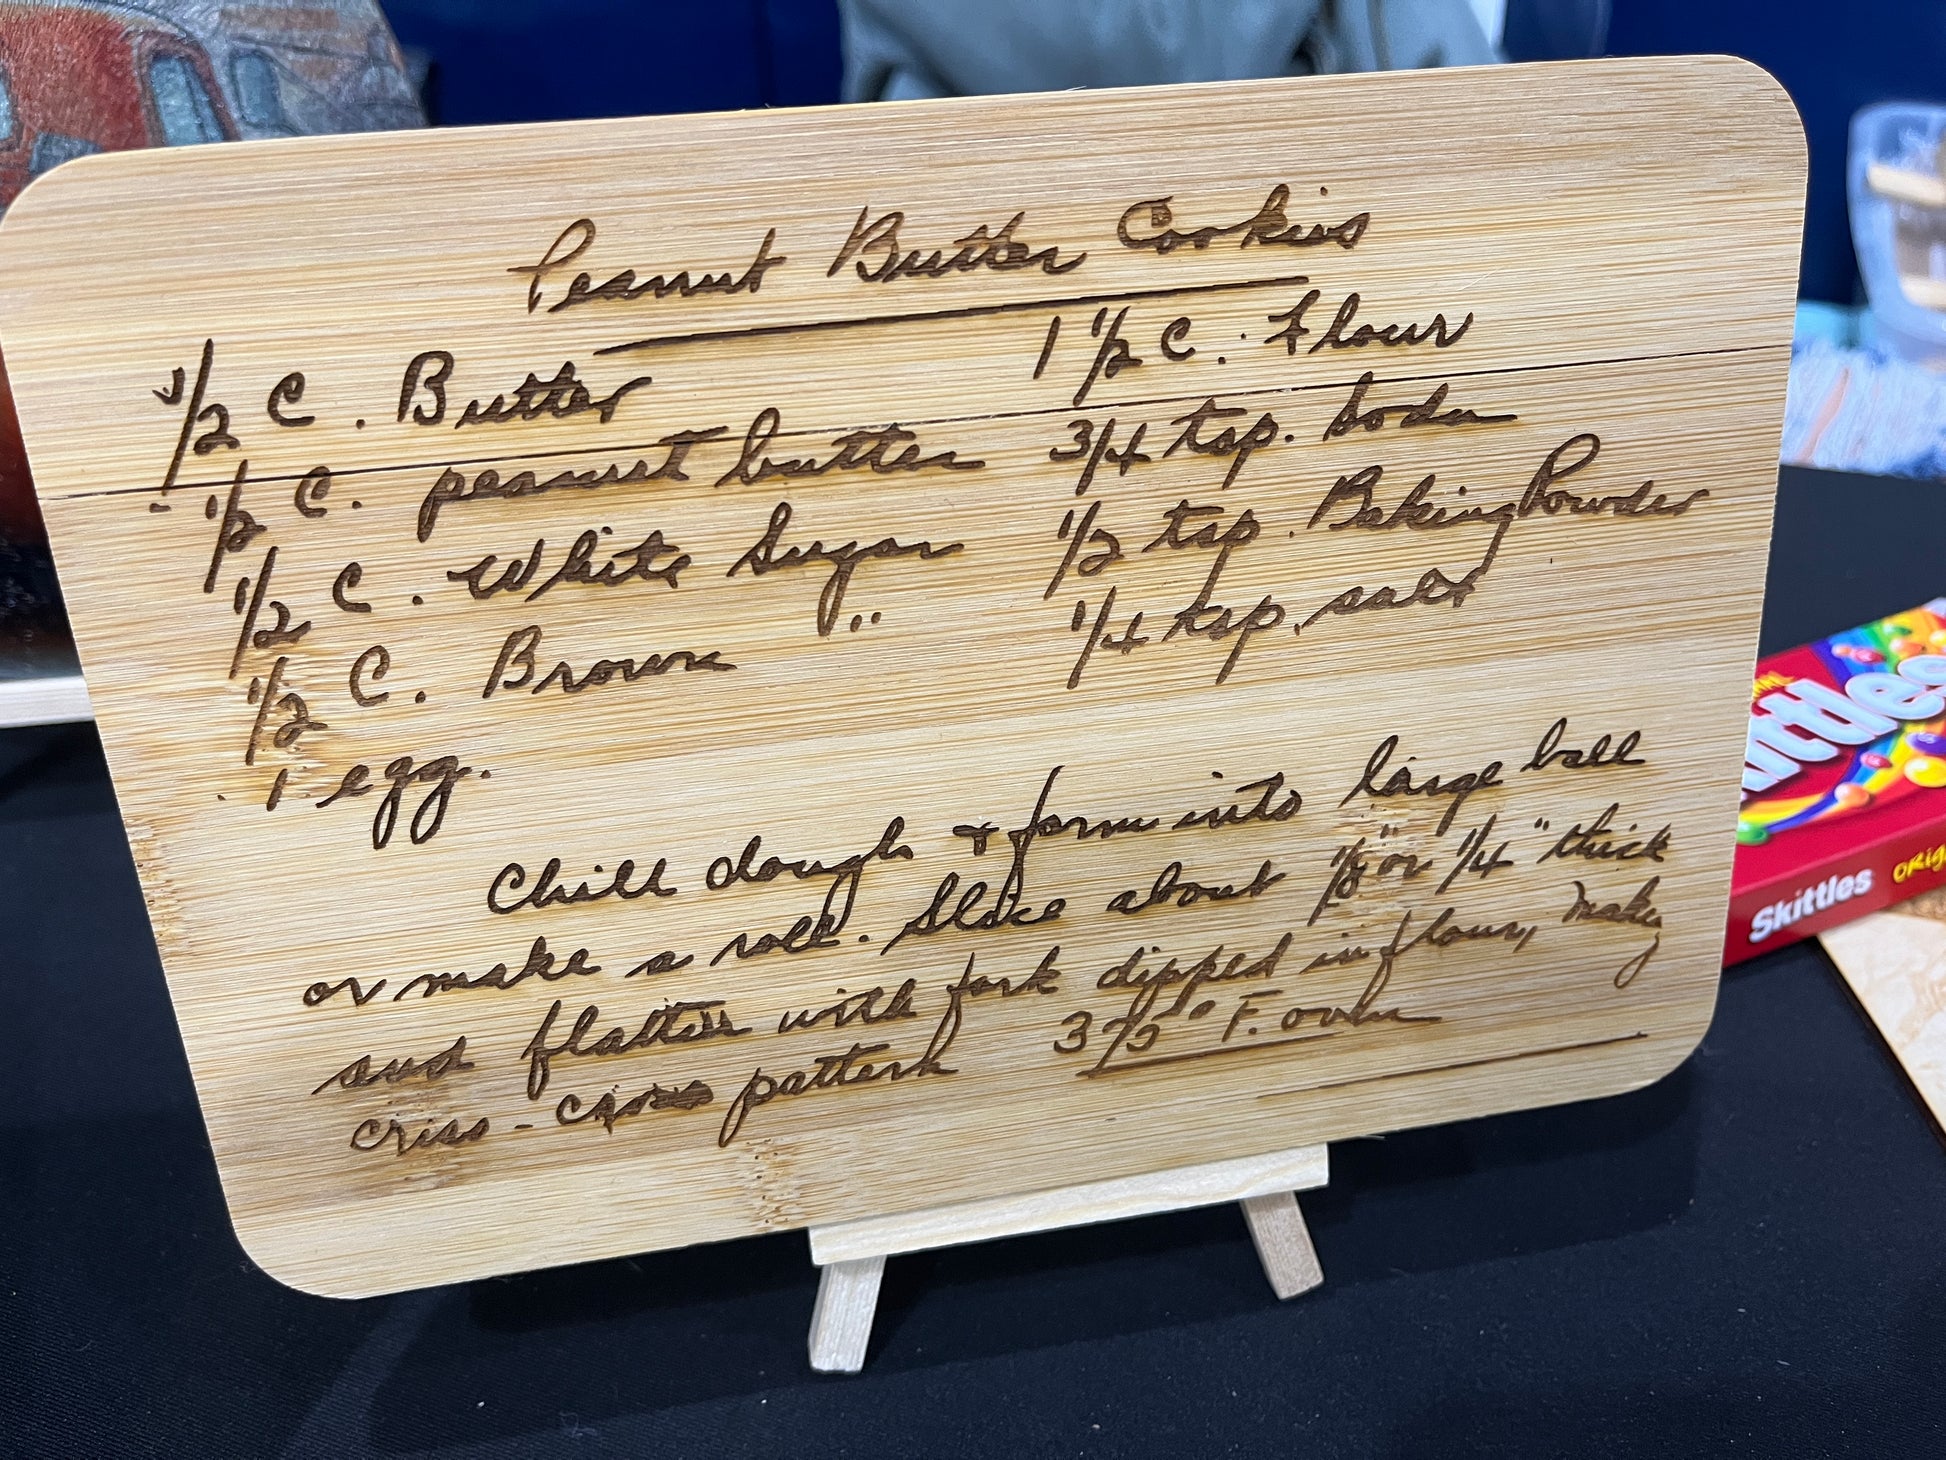 Peanut Butter Cookies
1/2 C. Butter
1/2 C. peanut butter
1/2 C. White Sugar
1/2 C. Brown "
1 egg.
1 1/2 C. Flour
3/4 tsp. Soda
1/2 tsp. Baking Powder
1/4 tsp. salt
Chill dough & form into large ball
or make a roll. Slice about 1/8" or 1/4" thick
and flatten with fork dipped in flour, making
criss-cross pattern 375° F. oven
Skittles
Skittles